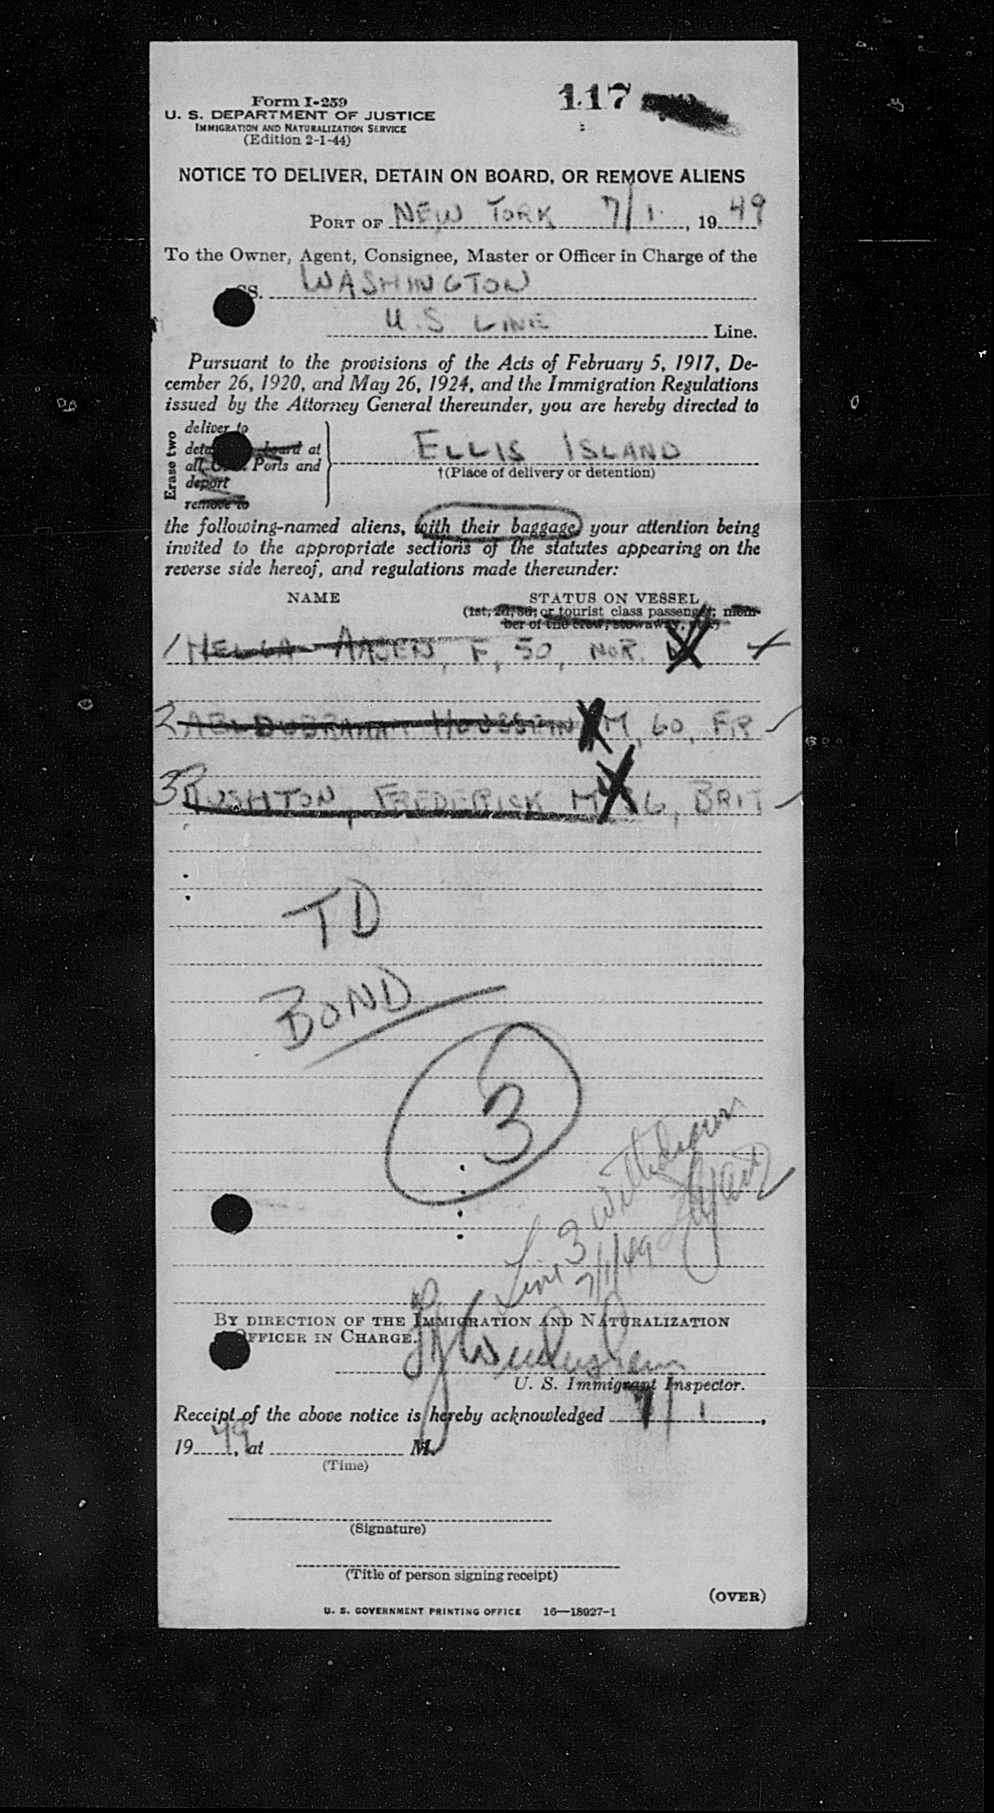 Form I-259
117
U. S. DEPARTMENT OF JUSTICE
IMMIGRATION AND NATURALIZATION SERVICE
(Edition 2-1-44)
NOTICE TO DELIVER, DETAIN ON BOARD, OR REMOVE ALIENS
PORT OF NEW YORK 7/1, 1949
To the Owner, Agent, Consignee, Master or Officer in Charge of the
SS. WASHINGTON
U.S LINE Line.
Pursuant to the provisions of the Acts of February 5, 1917, De-
cember 26, 1920, and May 26, 1924, and the Immigration Regulations
issued by the Attorney General thereunder, you are hereby directed to
Erase two
deliver to
board at
Ports and
deport
remove to
ELLIS ISLAND
†(Place of delivery or detention)
the following-named aliens, with their baggage, your attention being
invited to the appropriate sections of the statutes appearing on the
reverse side hereof, and regulations made thereunder:
NAME STATUS ON VESSEL
(1st, 2d, 3d, or tourist class passenger; mem-
ber of the crew, stowaway, )
1 HELGA AASEN, F, 50, NOR.
2 HOUSSEIN M, 60, FR
3 RUSHTON, FREDERICK M 6, BRIT
TD
BOND
3
Line 3 withdrawn
7/1/49
BY DIRECTION OF THE IMMIGRATION AND NATURALIZATION
OFFICER IN CHARGE.
U. S. Immigrant Inspector.
Receipt of the above notice is hereby acknowledged 7/1,
1949, at M.
(Time)
(Signature)
(Title of person signing receipt)
(OVER)
U. S. GOVERNMENT PRINTING OFFICE 16—18927-1